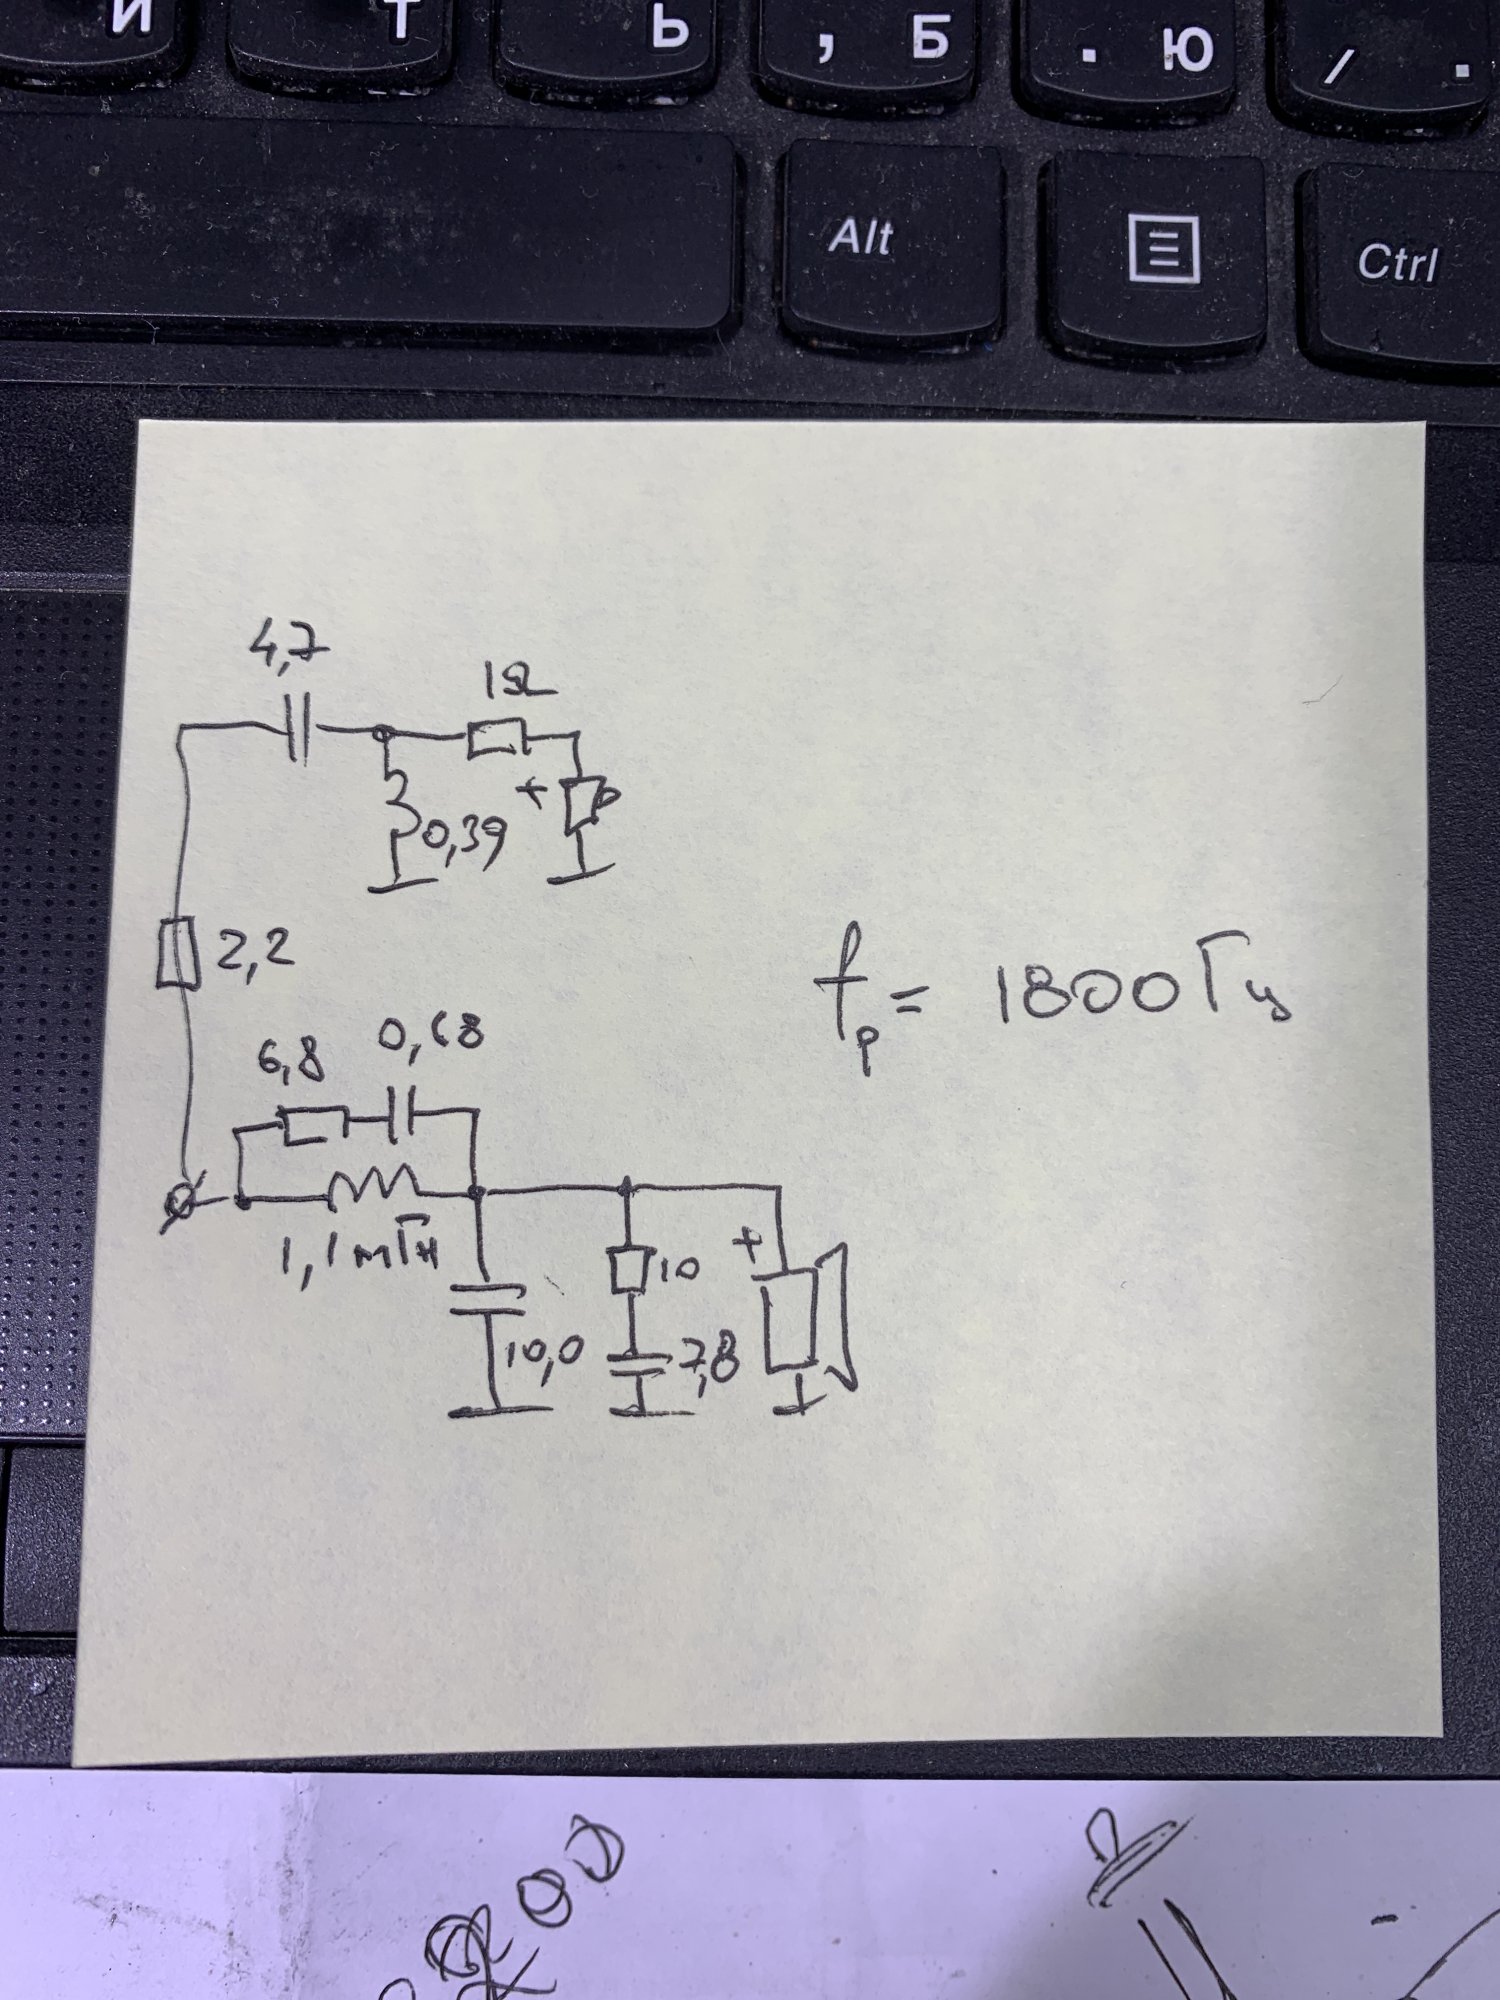 И Т Ь , Б . Ю / .
Alt Ctrl
4,7
1Ω
+
0,39
2,2
fр = 1800Гц
6,8 0,68
1,1мГн
+
10
10,0
7,8